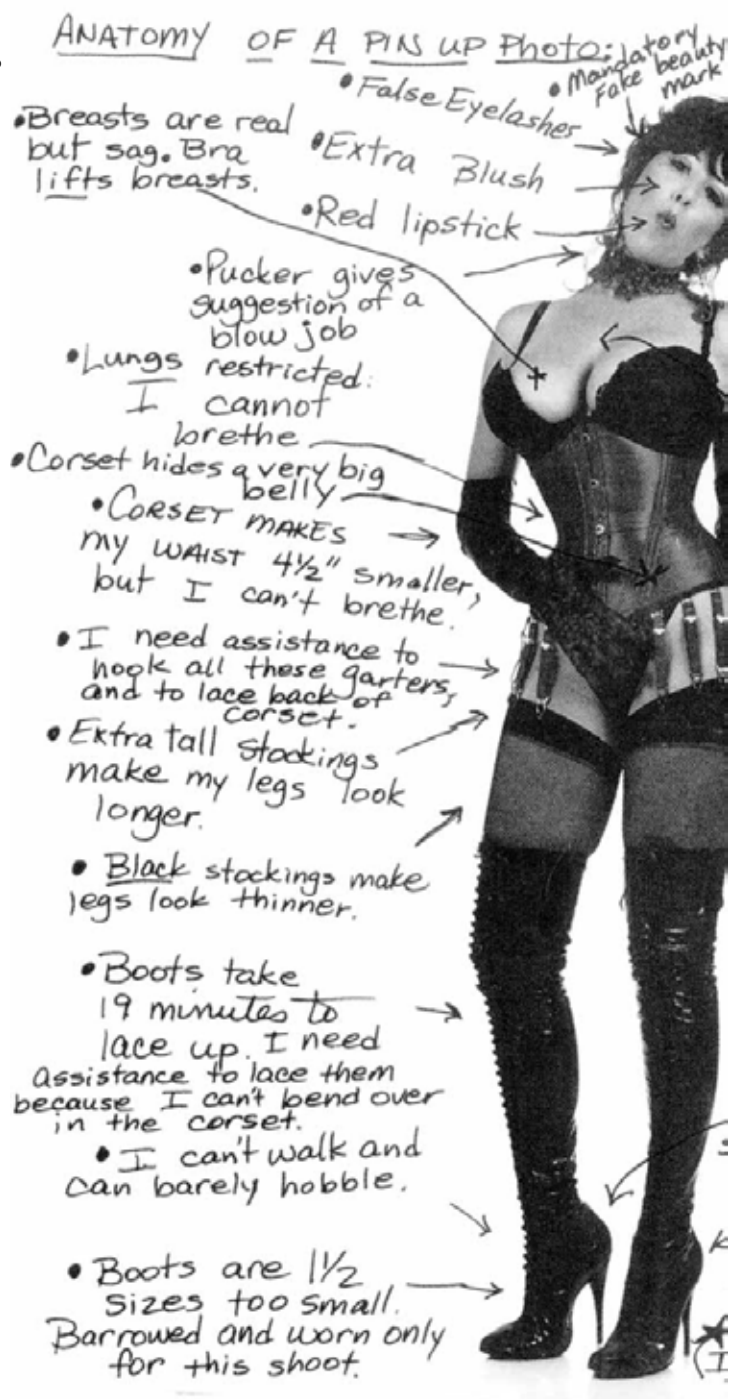 ANATOMY OF A PIN UP Photo:
• Mandatory
Fake beauty
mark
• False Eyelashes
• Breasts are real
but sag. Bra
lifts breasts.
• Extra Blush
• Red lipstick
• Pucker gives
suggestion of a
blow job
• Lungs restricted.
I cannot
brethe
• Corset hides a very big
belly
• CORSET MAKES
my WAIST 4½" smaller,
but I can't brethe.
• I need assistance to
hook all these garters,
and to lace back of
corset.
• Extra tall stockings
make my legs look
longer.
• Black stockings make
legs look thinner.
• Boots take
19 minutes to
lace up. I need
assistance to lace them
because I can't bend over
in the corset.
• I can't walk and
can barely hobble.
• Boots are 1½
sizes too small.
Barrowed and worn only
for this shoot.